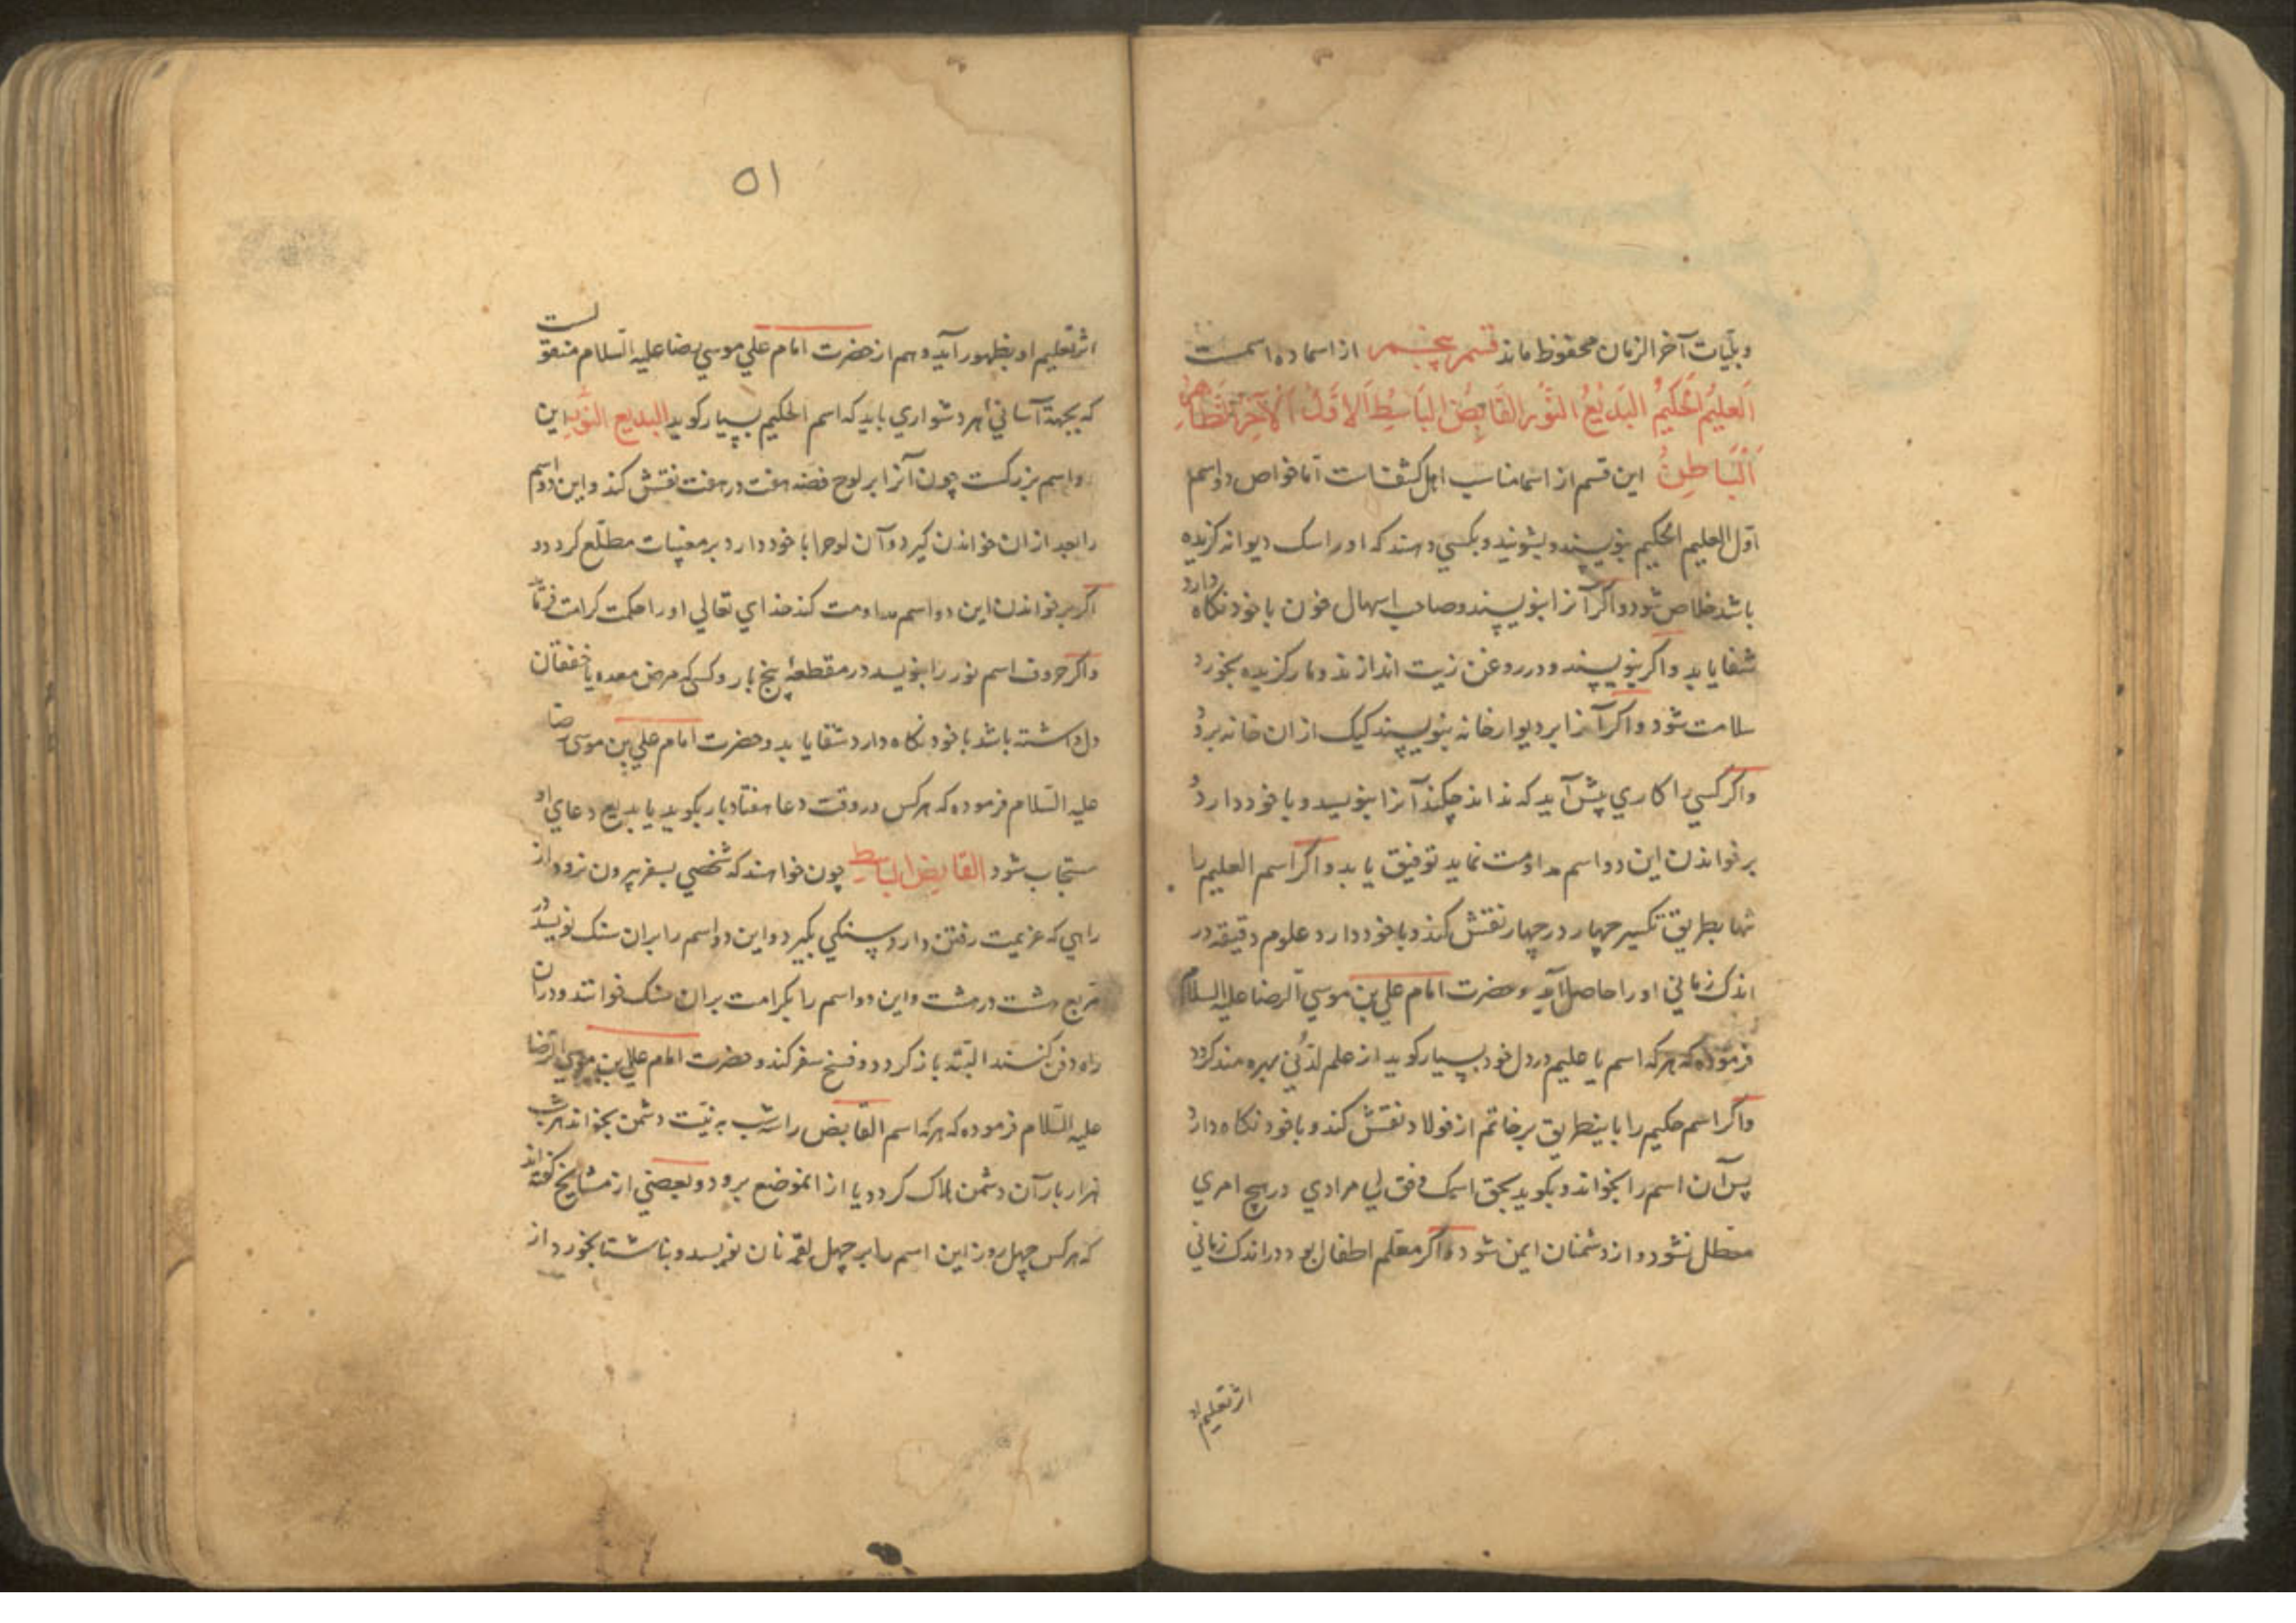 وبلیّات آخر الزمان محفوظ ماند قسم پنجم از اسما ده اسمست
اَلعَلیمُ الحَکیمُ البَدیعُ النّورُ القَابِضُ البَاسِطُ اَلاوَّلُ الآخِرُ الظَّاهِرُ
اَلْبَاطِنُ این قسم از اسما مناسب اهل کشفات اما خواص دو اسم
اوّل العلیم الحکیم بنویسند و بشویند و بکسی دهند که او را سک دیوانه کزیده
باشد خلاص شود واکر آنرا بنویسند و صاحب اسهال خون با خود نکاه دارد
شفا یابد واکر بنویسند و در روغن زیت اندازند و مار کزیده بخورد
سلامت شود واکر آنرا بر دیوار خانه بنویسند کیک از ان خانه برود
واکر کسی را کاری پیش آید که نداند چکند آنرا بنویسد و با خود دارد و
بر خواندن این دو اسم مداومت نماید توفیق یابد واکر اسم العلیم را
تنها بطریق تکسیر چهار در چهار نقش کند و با خود دارد علوم دقیقه در
اندک زمانی او را حاصل آید و حضرت امام علی بن موسی الرضا علیه السلام
فرموده که هرکه اسم یا علیم در دل خود بسیار کوید از علم لدنّی بهره مند کردد
واکر اسم حکیم را باینطریق بر خاتم از فولاد نقش کند و با خود نکاه دارد
پس آن اسم را بخواند و بکوید بحق اسمک وفق لی مرادی در هیچ امری
معطل نشود و از دشمنان ایمن شود واکر معلم اطفال بود در اندک زمانی
اثر تعلیم او
۵۱
اثر تعلیم او بظهور آید و هم از حضرت امام علی موسی رضا علیه السلام منقولست
که بجهة آسانی هر دشواری باید که اسم الحکیم بسیار کوید البدیع النّور این
دو اسم بزرکست چون آنرا بر لوح فضه هفت در هفت نقش کند و این دو اسم
را بعد از ان خواندن کیرد و آن لوح را با خود دارد بر مغیبات مطلّع کردد و
اکر بر خواندن این دو اسم مداومت کند خدای تعالی او را حکمت کرامت فرماید
واکر حروف اسم نور را بنویسد در مقطعه پنج بار و کسی که مرض معده یا خفقان
دل داشته باشد با خود نکاه دارد شفا یابد و حضرت امام علی بن موسی رضا
علیه السّلام فرموده که هر کس در وقت دعا هفتاد بار بکوید یا بدیع دعای او
مستجاب شود القابض الباسط چون خواهند که شخصی بسفر بیرون نرود از
راهی که عزیمت رفتن دارد سنکی بکیرد و این دو اسم را بران سنک نویسد در
مربع هشت در هشت و این دو اسم را بکرامت بران سنک خوانند و دران
راه دفن کنند البتّه باز کردد و فسخ سفر کند و حضرت امام علی بن موسی الرضا
علیه السّلام فرموده که هرکه اسم القابض را سه شب به نیّت دشمن بخواند هر شب
هزار بار آن دشمن هلاک کردد یا از انموضع برود و بعضی از مشایخ کفته اند
که هر کس چهل روز این اسم را بر چهل لقمه نان نویسد و بناشتا بخورد از